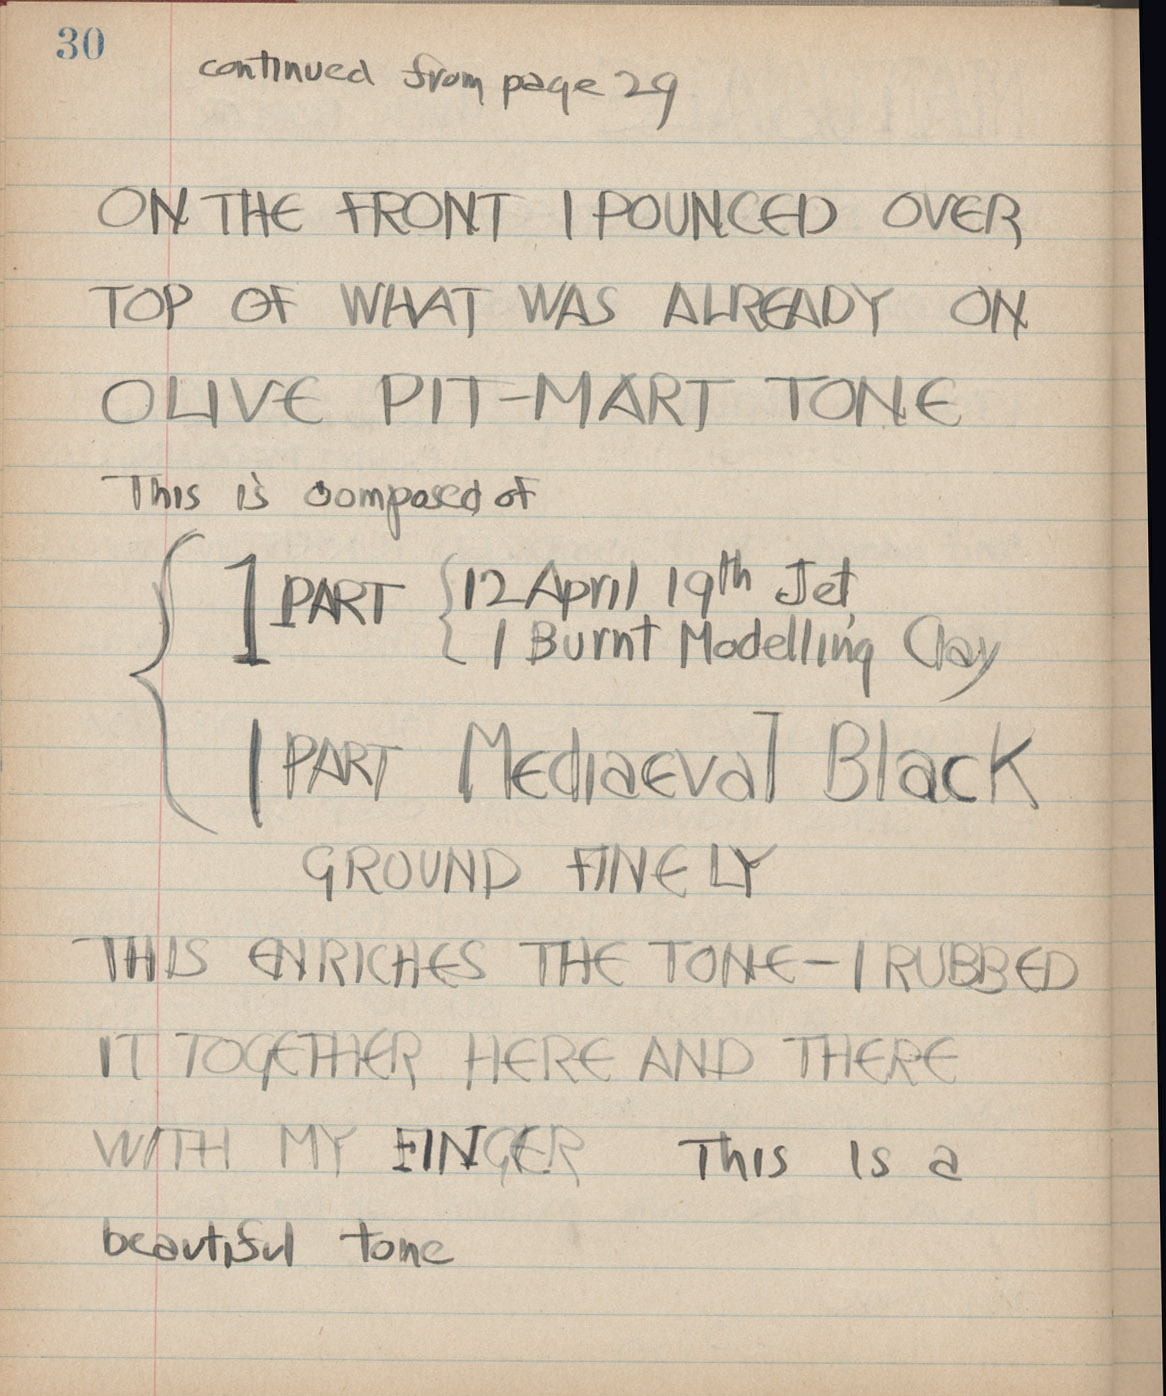 30
continued from page 29
ON THE FRONT I POUNCED OVER
TOP OF WHAT WAS ALREADY ON
OLIVE PIT-MART TONE
This is composed of
1 PART { 12 April 19th Jet,
1 Burnt Modelling Clay
1 PART Mediaeval Black
GROUND FINELY
THIS ENRICHES THE TONE - I RUBBED
IT TOGETHER HERE AND THERE
WITH MY FINGER This is a
beautiful tone